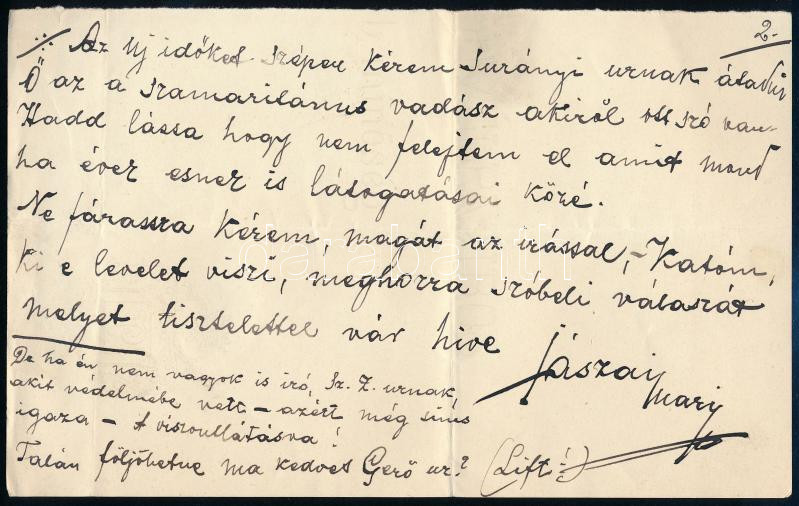 2.
Az Uj időket szépen kérem Surányi urnak átadni
Ő az a szamaritánus vadász akiről ott szó van.
Hadd lássa hogy nem felejtem el amit mond
ha évek esnek is látogatásai közé.
Ne fárassza kérem, magát az írással, - Katóm,
ki e levelet viszi, meghozza szóbeli válaszát
melyet tisztelettel vár híve
Jászai
Mari
De ha én nem vagyok is iró, Sz. Z. urnak,
akit védelmébe vett - azért még sincs
igaza - A viszontlátásra!
Talán följöhetne ma kedves Gerő ur? (Lift!)
darabanth